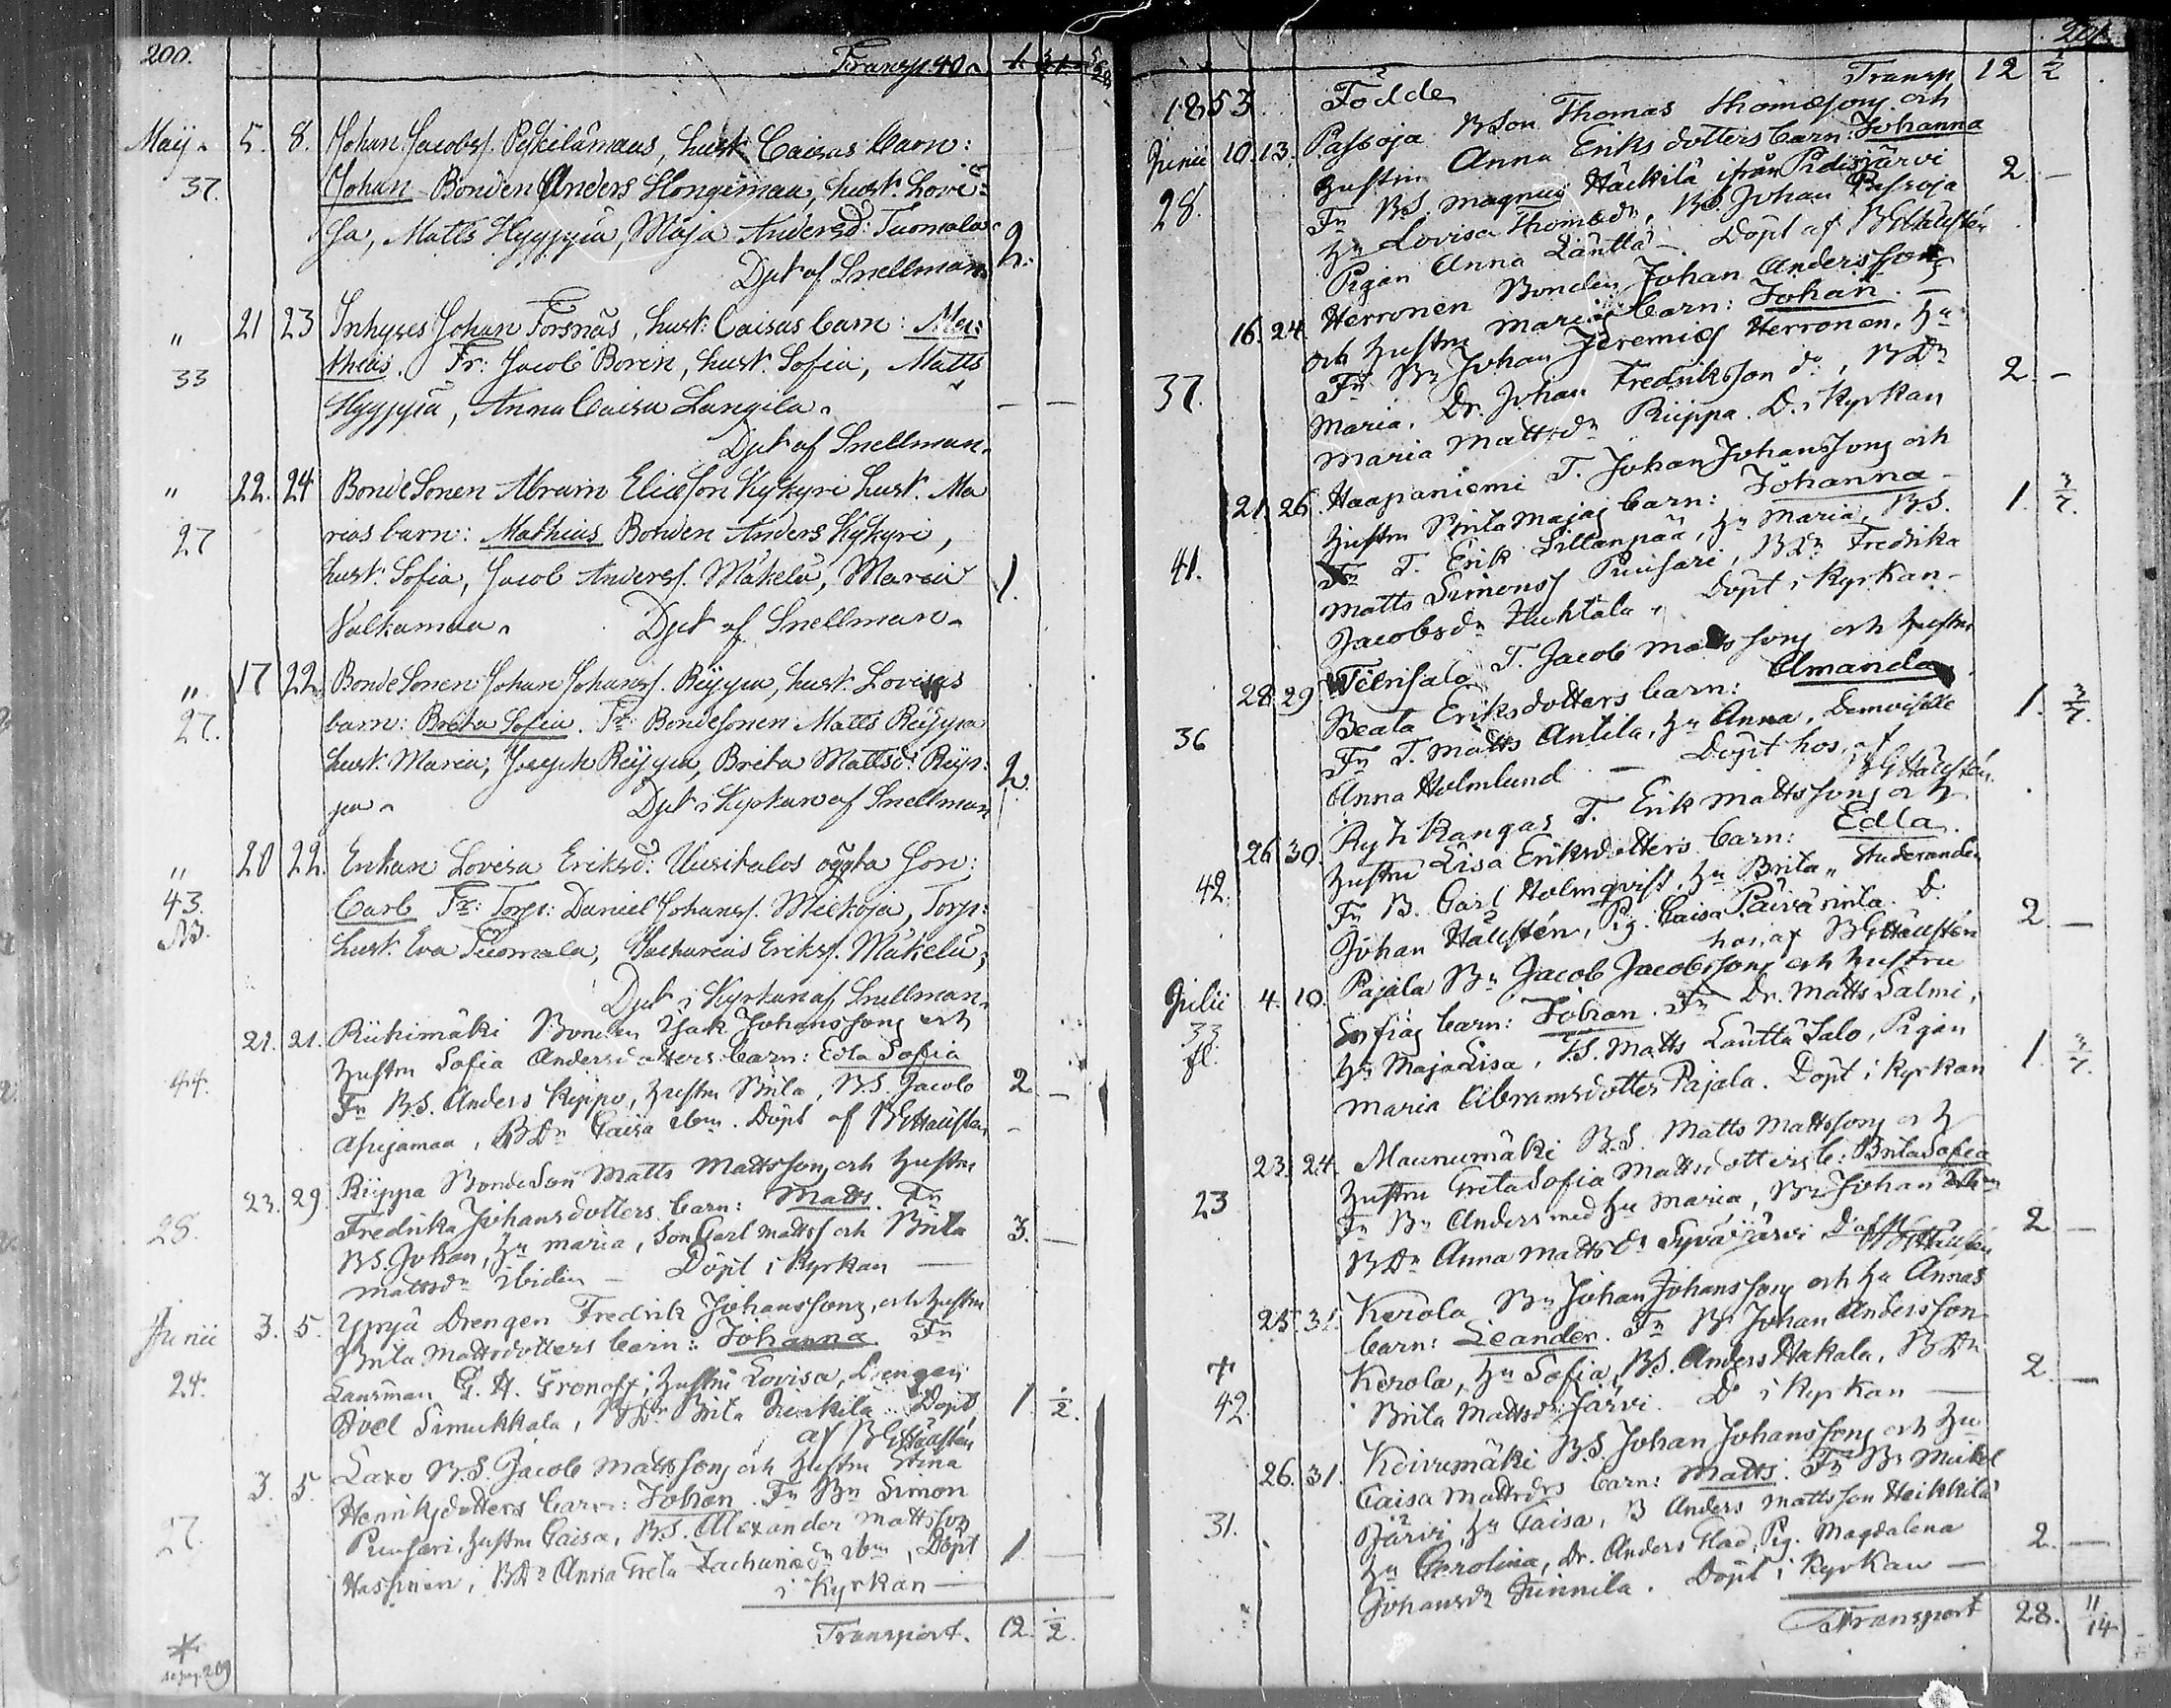 200.
Transp. 40
Maij 5. 8. Johan Jacobss. Peskilämaas, hust. Caisas barn:
37. Johan Bonden Anders Hongimaa, hust. Lovi-
sa, Matts Hyyppiä, Maja Andersd: Tuomala 2.
Dpt af Snellman.
" 21 23 Inhyses Johan Forsnäs, hust: Caisas barn: Mat-
33 theus. Fr: Jacob Boren, hust. Sofia, Matts
Hyyppiä, Anna Caisa Langila. — —
Dpt af Snellman.
" 22. 24 BondeSonen Abram Eliæson Kykyri hust. Ma
27 rias barn: Mathias Bonden Anders Kykyri,
hust. Sofia, Jacob Anderss. Mäkelä, Maria 1.
Valkamaa. Dpt af Snellman.
" 17 22. BondeSonen Johan Johanss. Riippa, hust. Lovisas
27. barn: Brita Sofia. Fr: Bondesonen Matts Riippa
hust. Maria, Joseph Riippa, Brita Mattsd: Riip- 2.
pa. Dpt i Kyrkan af Snellman
" 20 22. Enkan Lovisa Eriksd: Uusitalos oägta Son:
43. Carl Fr: Torp: Daniel Johanss. Mickoja, Torp:
NB. hust. Eva Tuomala, Zacharias Erikss. Mäkelä,
Dpt i Kyrkan af Snellman.
21. 21. Riihimäki Bonden Isak Johanssons och
hustru Sofia Andersdotters barn: Edla Sofia
44. Fr B.S. Anders Riippa, hustru Brita, B.S. Jacob 2 —
, BDr Caisa ibm. Döpt af BGHällstén
23. 29. Riippa BondeSon Matts Mattssons och hustru
Fredrika Johansdotters barn: Matts. Fr
28. B.S. Johan, hu Maria, Son Carl Mattss och Brita 3. —
Mattsdr ibidem — Döpt i Kyrkan —
Junii 3. 5. Yppyä Drengen Fredrik Johanssons, och hustru
Brita Mattsdotters barn: Johanna Fr
24. Länsman G. A. Gronoff, hustru Lovisa, Drengen
Simukkala, BDr Brita Döpt 1 1/2.
af BGHällstén
3. 5. Laxo B.S. Jacob Mattssons och hustru Stina
Henriksdotters barn: Johan. Fr Bn Simon
27. Puusari, hustru Caisa, B.S. Alexander Mattsson
Hassinen, BDr Anna Greta Zachariædr ibm, Döpt 1 —
i Kyrkan —
Transport. 12. 1/2.
*
se pag. 209
201.
Transp 12 1/2
1853 Födde
Junii 10. 13. Passoja BSon Thomas Thomæsons och
hustru Anna Eriks dotters barn: Johanna
28. Fr B.S. Magnus Häckilä ifrån Pidisjärvi 2. —
hu Lovisa Thomædr, BS Johan Passoja
Pigan Anna Länttä — Döpt af BGHällstén
16. 24. Herronen Bonden Johan Anderssons
och hustru Marias barn: Johan. —
37. Fr Bn Johan Jeremiæs Herronen, hu 2. —
Maria. Dr. Johan Fredriksson do, BDr
Maria Mattsdr Riippa. D. i Kyrkan
21. 26. Haapaniemi T. Johan Johanssons och
hustru Brita Majas barn: Johanna — 1. 3/7.
41. Fr T. Erik Sillanpää, hu Maria, B.S.
Matts Simonss Puusari, BDr Fredrika
Jacobsdr Huhtala, Döpt i Kyrkan —
28. 29 Tiensalo T. Jacob Matts sons och hustru
Beata Eriksdotters barn: Amanda
36 Fr T. Matts Antila, hu Anna, Demoiselle 1. 3/7.
Anna Holmlund — Döpt hos, af
BGHällstén
26 30. Ryti Kangas T. Erik Mattssons och
hustru Lisa Eriksdotters barn: Edla.
42. Fr B. Carl Holmqvist, hu Brita, Studeranden
Johan Hällstén, Pig. Caisa Päivärinta. D. 2. —
hos, af BGHällstén
Julii 4. 10. Pajala Bn Jacob Jacobssons och hustru
33. Sofias barn: Johan. Fr Dr. Matts Salmi,
fl. hu MajaLisa, T.S. Matts Länttä Salo, Pigan 1. 3/7.
Maria Abramsdotter Pajala. Döpt i Kyrkan
23. 24. Maunumäki B.S. Matts Mattssons och
hustru Greta Sofia Mattsdotters b: Brita Sofia
23 Fr Bn Anders med hu Maria, Bn Johan 2 —
BDr Anna Mattsdr Syväjärvi D af BGHällstén
25. 31. Kerola Bn Johan Johanssons och hu Annas
barn: Leander. Fr Bn Johan Andersson
+ Kerola, hu Sofia, B.S. Anders Hakala, BDr 2. —
42. Brita Mattsdr Järvi. D i Kyrkan —
26. 31. Koivumäki B.S. Johan Johanssons och hu
Caisa Mattsdrs barn: Matts. Fr Bn Mickel
31. Järvi, hu Caisa, B Anders Mattsson Heikkilä
hu Carolina, Dr. Anders Glad, Pig. Magdalena 2. —
Johansdr Junnila. Döpt i Kyrkan —
Transport 28. 11/14